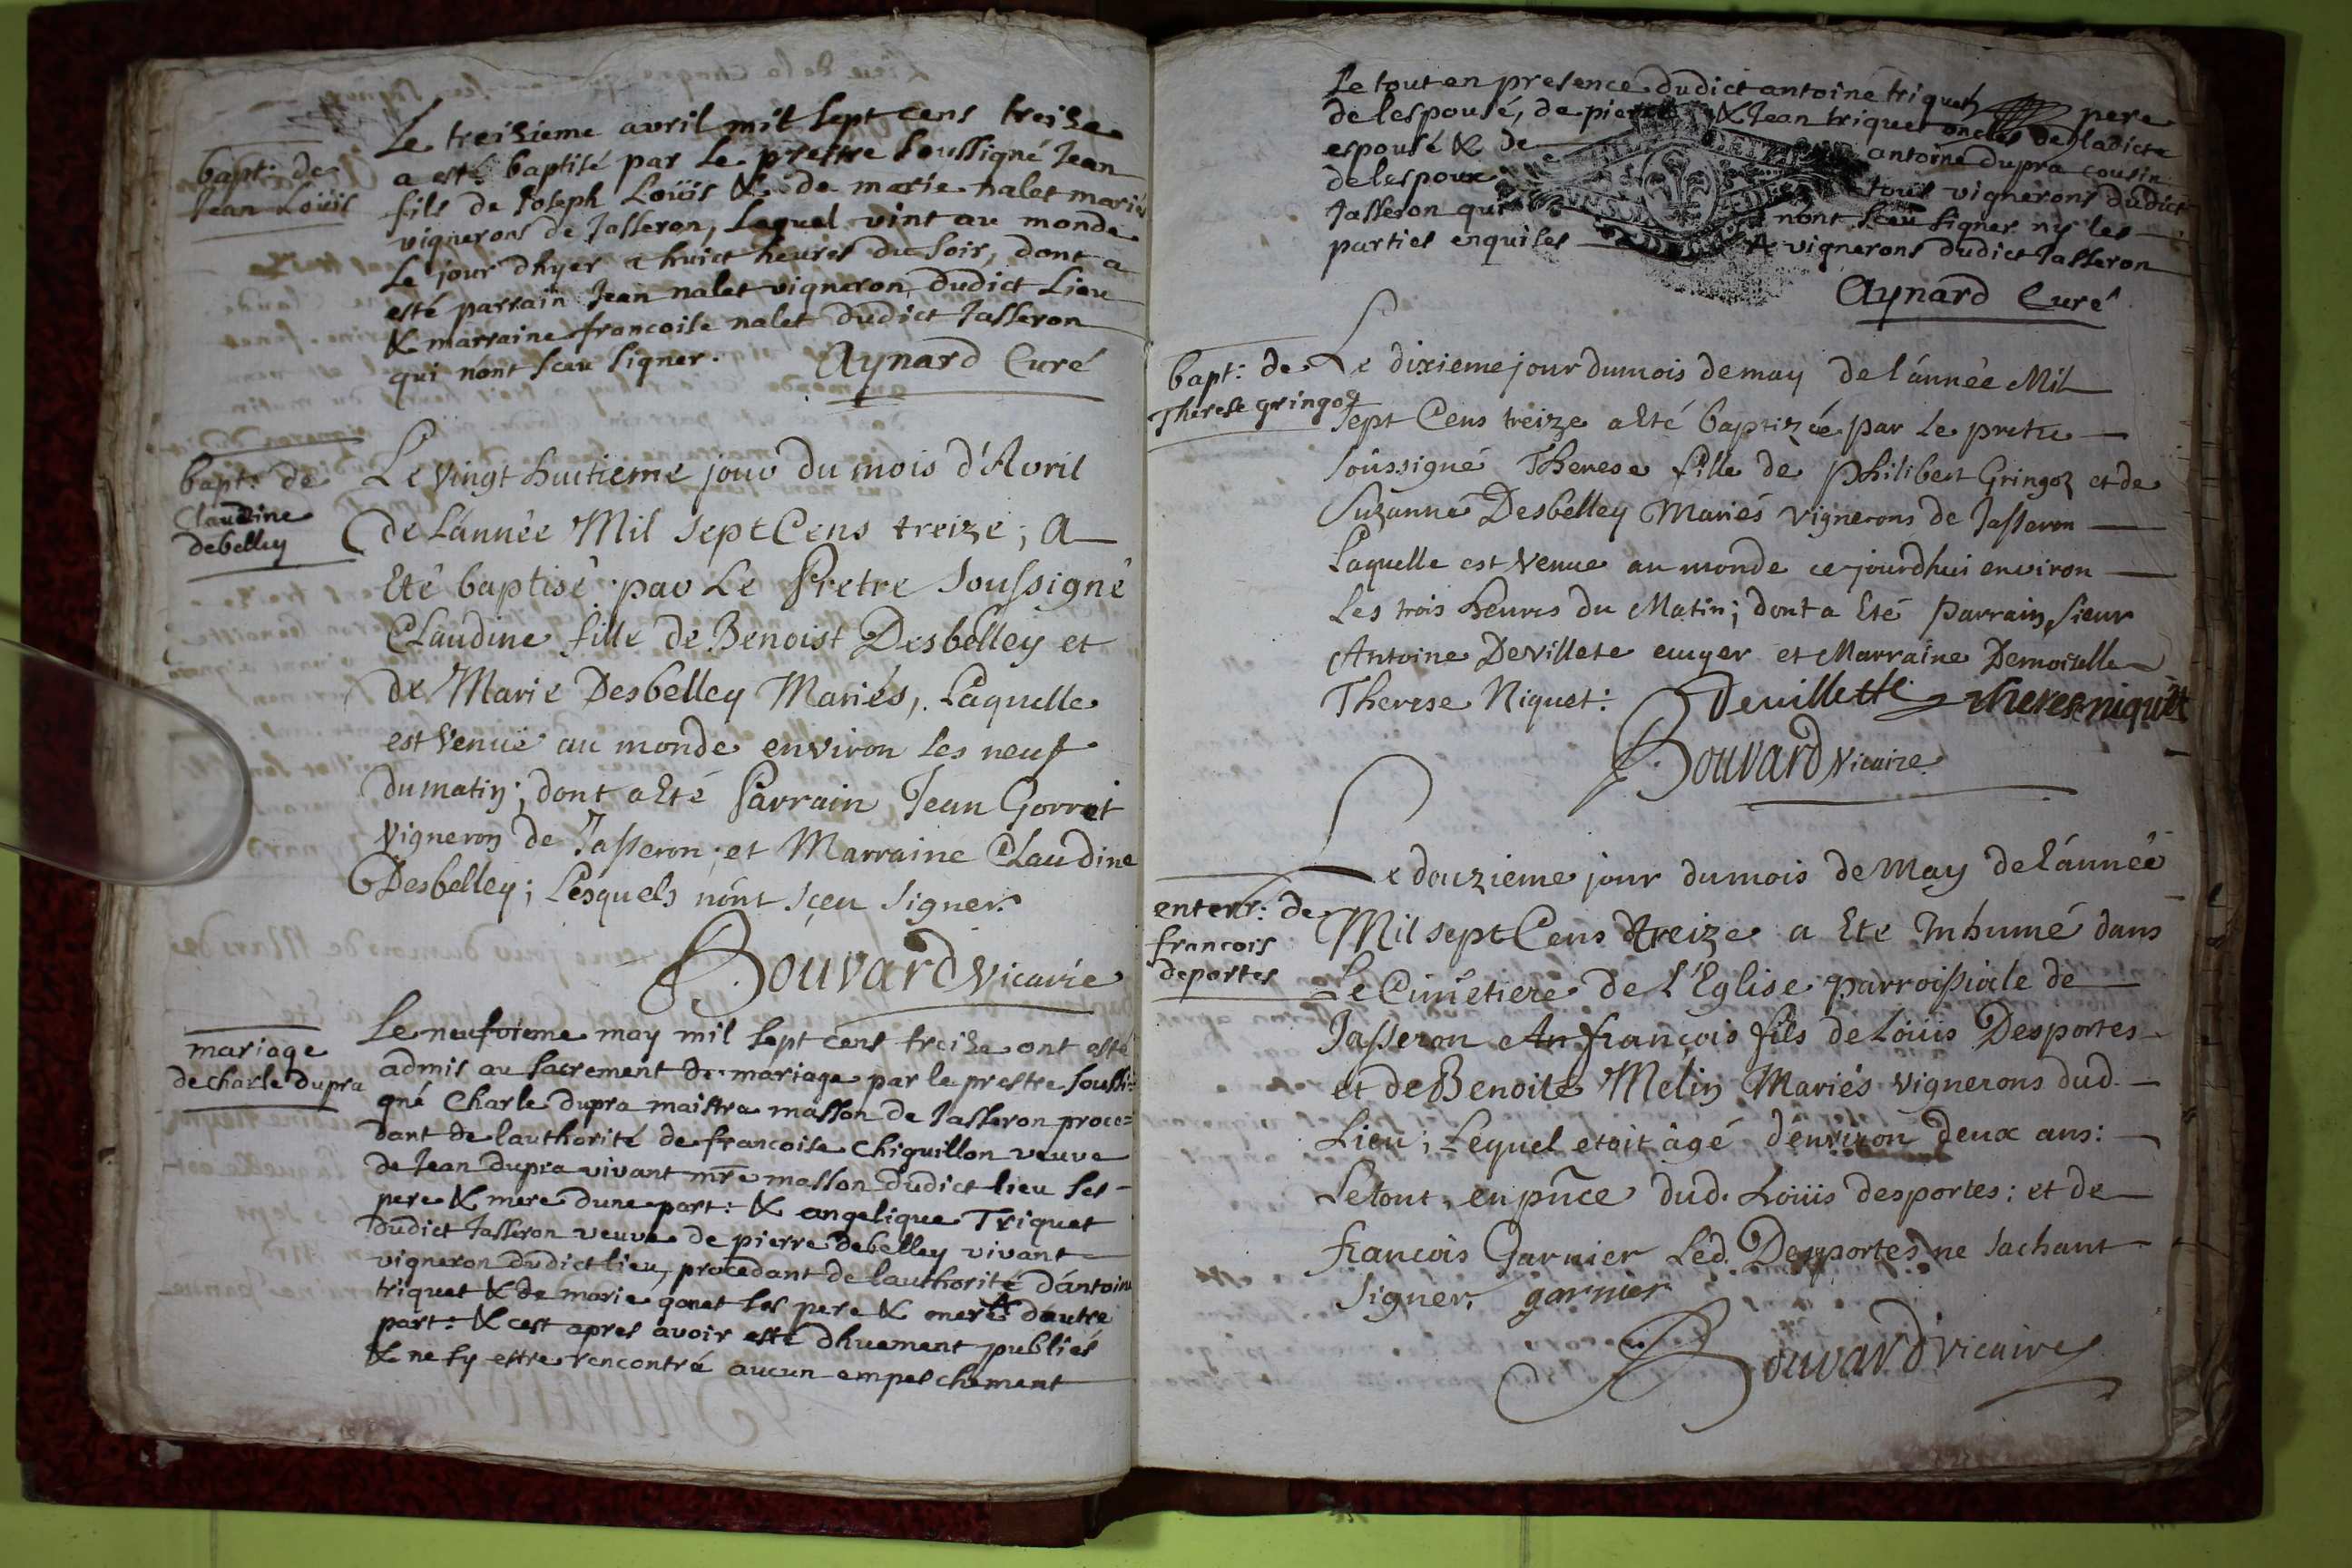 bapt: de
Jean Loüis
Le treizieme avril mil sept cens treize
a esté baptisé par le prestre soussigné Jean
fils de Joseph Loüis & de marie nalet mariés
vignerons de Jasseron, Lequel vint au monde
Le jour dhyer a huict heures du soir, dont a
esté parrain Jean nalet vigneron dudict Lieu
& marraine francoise nalet dudict Jasseron
qui n'ont sceu signer. Aynard Curé
bapt: de
Claudine
debelley
Le vingt huitieme jour du mois d'Avril
de L'année Mil sept Cens treize; A
Eté baptisé par Le Pretre soussigné
Claudine fille de Benoist Desbelley et
de Marie Desbelley Mariés, Laquelle
est venue au monde environ les neuf
du matin; dont a Eté Parrain Jean Gorrat
vigneron de Jasseron; et Marraine Claudine
Desbelley; Lesquels n'ont sçeu signer.
Bouvard vicaire
mariage
de charle dupra
Le neufvieme may mil sept cens treize ont esté
admis au sacrement de mariage par le prestre soussi=
gné Charle dupra maistre masson de Jasseron proce=
dant de lauthorité de francoise Chiquillon veuve
de Jean dupra vivant mre masson dudict lieu ses
pere & mere dune part: & angelique Triquet
dudict Jasseron veuve de pierre debelley vivant
vigneron dudict lieu, procedant de lauthorité d'antoine
triquet & de marie gonet ses pere & mere d'autre
part: & cest apres avoir esté dhuement publiés
& ne sy estre rencontré aucun empeschement
Le tout en presence dudict antoine triquet pere
de lespousé, de pierre & Jean triquet oncles de ladicte
espousé & de antoine dupra cousin
de lespoux tous vignerons dudict
Jasseron qui n'ont sceu signer ny les
parties enquises & vignerons dudict Jasseron
Aynard Curé
bapt: de
Therese gringoz
Le dixieme jour du mois de may de l'année Mil
sept Cens treize a Eté baptizée par le pretre
soussigné Therese fille de Philibert Gringoz et de
Suzanne Desbelley Mariés vignerons de Jasseron
Laquelle est venue au monde ce jourdhui environ
les trois heures du Matin; dont a Eté parrain sieur
Antoine Devillete ecuyer et Marraine Demoiselle
Therese Niquet: Devillette Therese niquet
Bouvard vicaire
enterr: de
francois
deportes
Le douzieme jour du mois de May de l'année
Mil sept Cens treize a Eté Inhumé dans
Le Cimetiere de l'Eglise parroissiale de
Jasseron françois fils de Loüis Desportes
et de Benoite Melin Mariés vignerons dud.
Lieu; Lequel etoit âgé d'environ deux ans:
Le tout, en pñce dud. Loüis desportes; et de
francois Garnier Led. Desportes ne sachant
signer. garnier
Bouvard vicaire